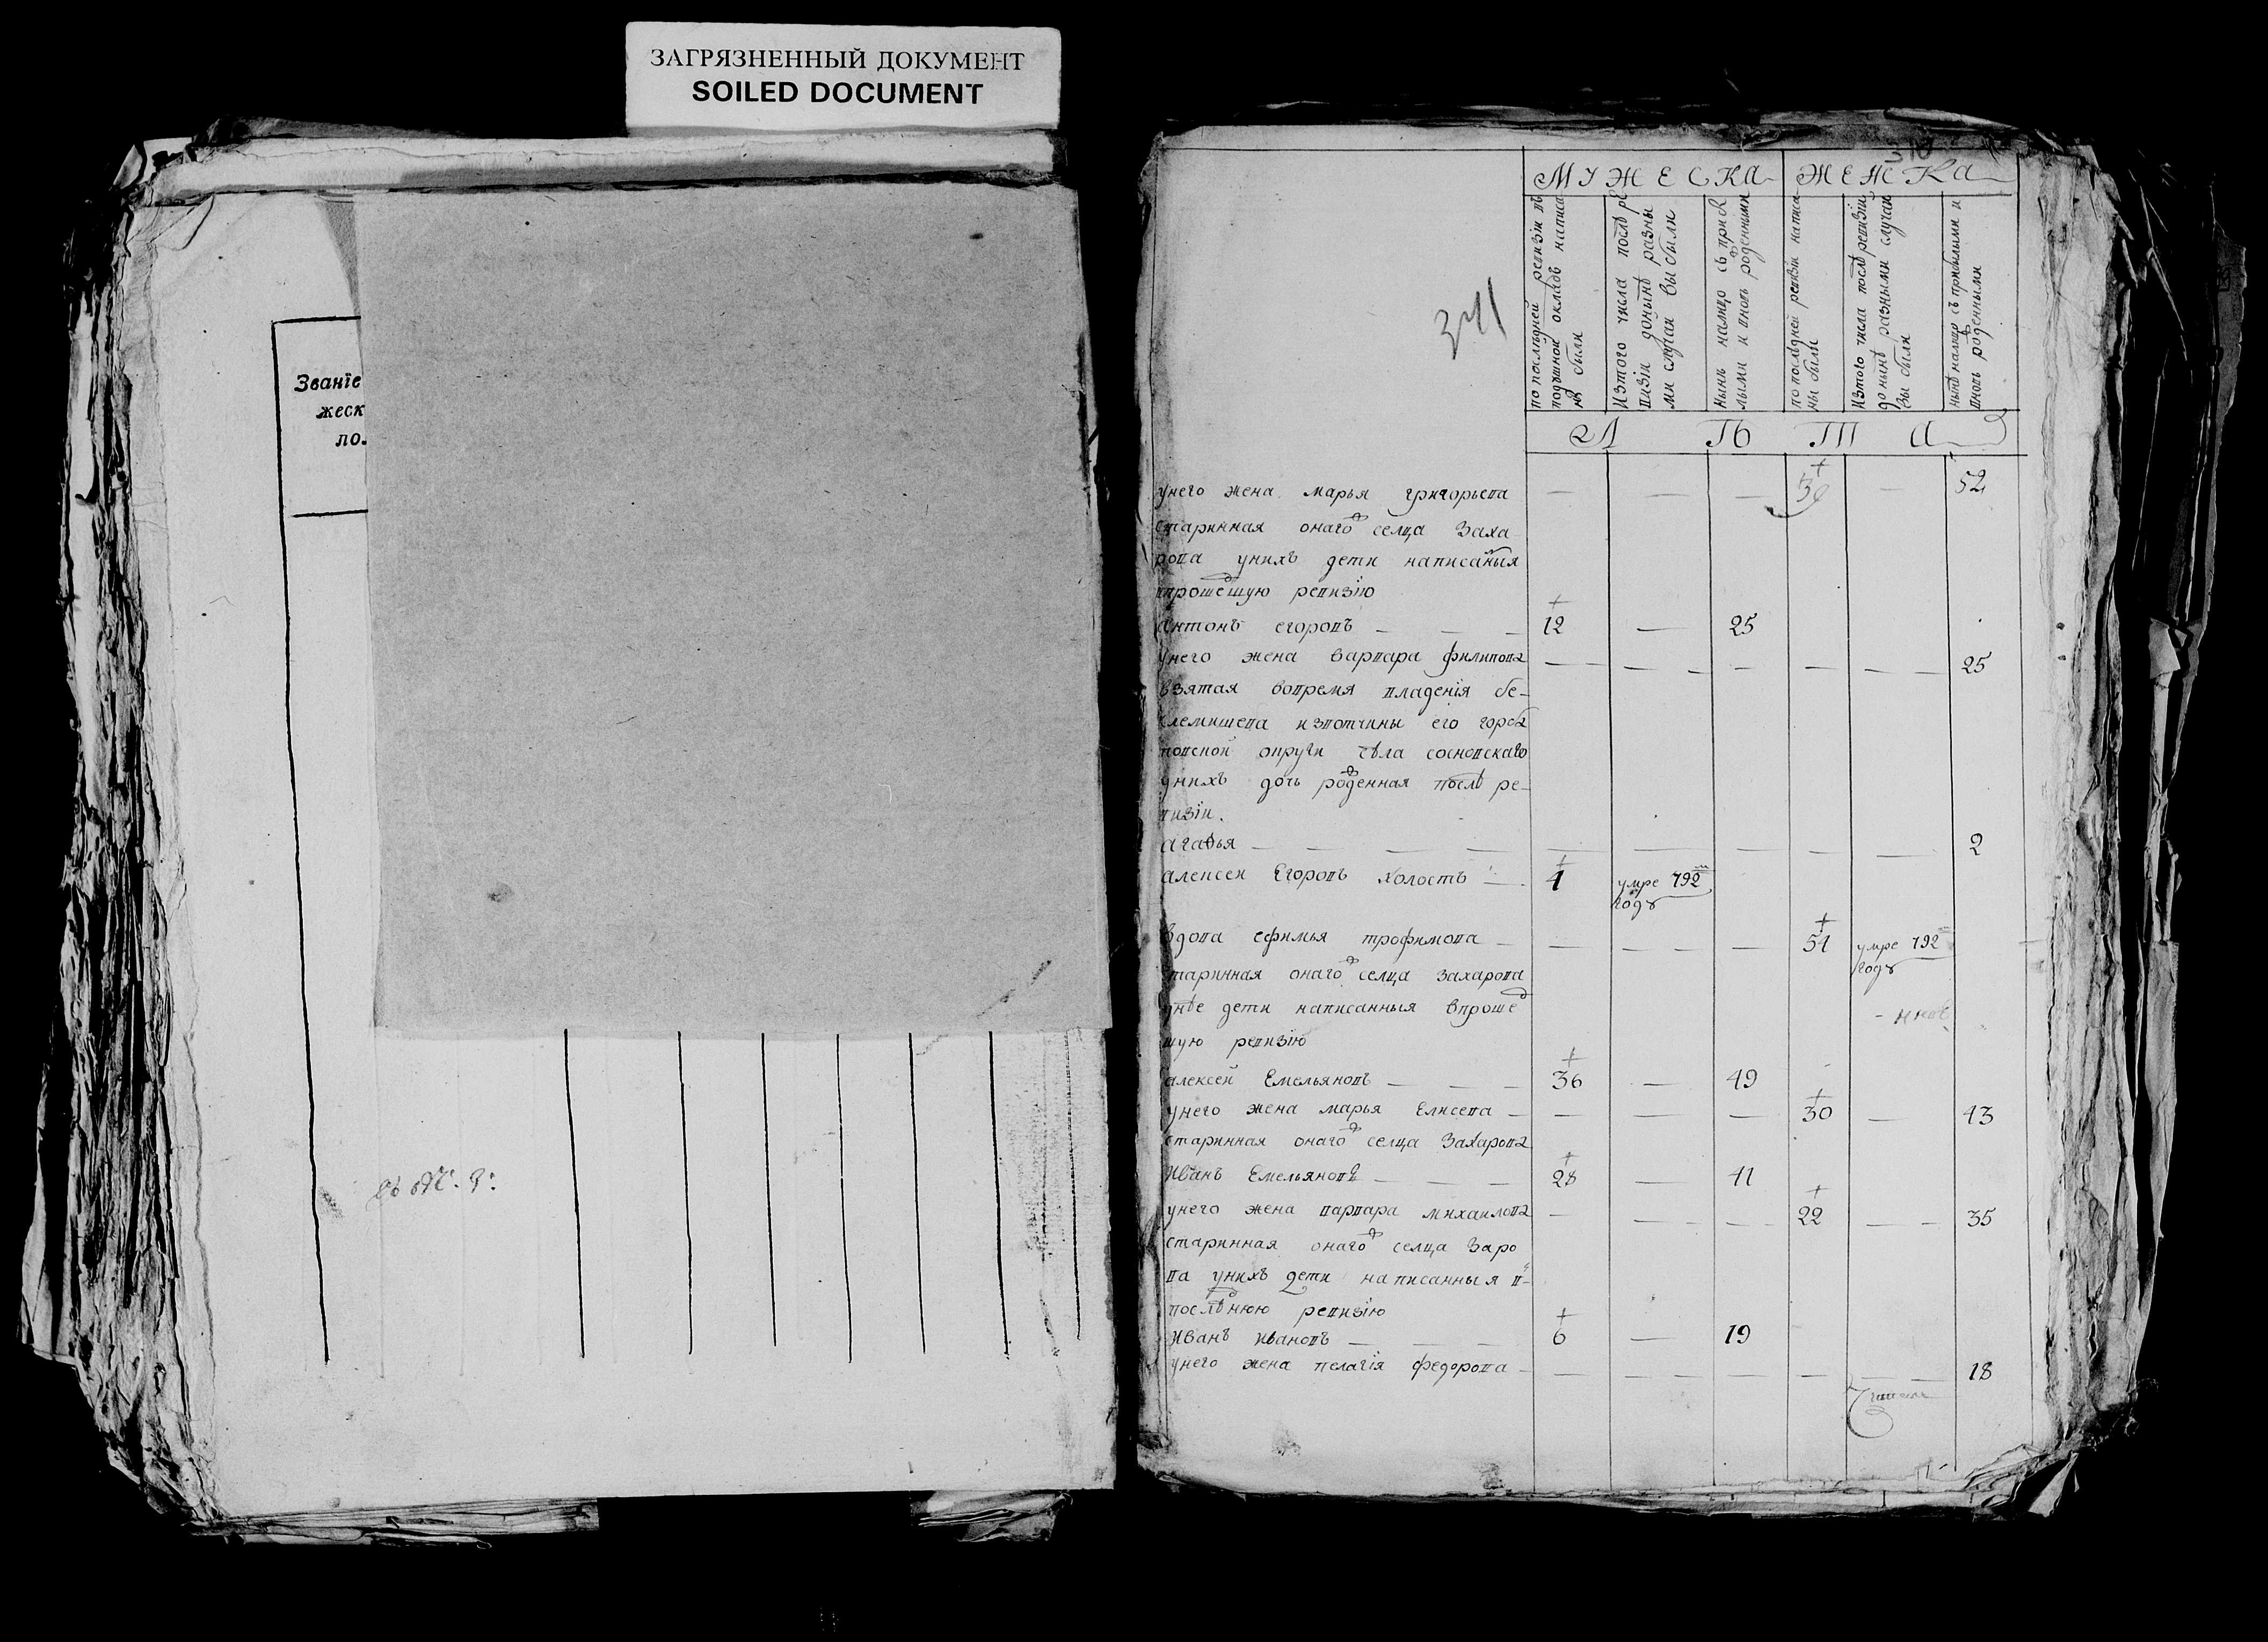 ЗАГРЯЗНЕННЫЙ ДОКУМЕНТ
SOILED DOCUMENT
Званіе
жеск
по.
МУЖЕСКА
ЖЕНСКА
по последней ревизіи въ
подушной окладъ написа
нъ были
Изтого числа послѣ ре
визіи донынѣ разны
ми случаи выбыли
нынѣ налицо съ приб
лыми и вновь рожденными
по последней ревизіи написа
ны были
Изтого числа послѣ ревизіи
донынѣ разными случаи
выбыли
нынѣ налицо съ прибылыми и
вновь рожденными
Л Ѣ Т А
унего жена марья григорьева — — — — 52
старинная онаго селца Заха
рова унихъ дети написаныя
впрошедшую ревизію
Антонъ егоровъ — 12 — 25
унего жена варвара филипова — — — — — 25
взятая вовремя владенія бе-
клемишева извотчины его горба
товской округи села сосновскаго
унихъ дочь рожденная послѣ ре-
визіи.
агафья — — — — — — 2
алексеи Егоровъ холостъ — 1 умре 792
году
вдова ефимья трофимова — — — — 51 умре 792
году
старинная онаго селца захарова
унѣе дети написанныя впрошед
шую ревизію
алексей Емельяновъ — 36 — 49
унего жена марья Елисева — — — — 30 — 43
старинная онаго селца Захарова
Иванъ Емельяновъ — 28 — 41
унего жена варвара михаилова — — — 22 — 35
старинная онаго селца Заро
ва унихъ дети написанныя в-
последнюю ревизію
Иванъ Ивановъ — 6 — 19
унего жена пелагія федорова — — — — — — 18